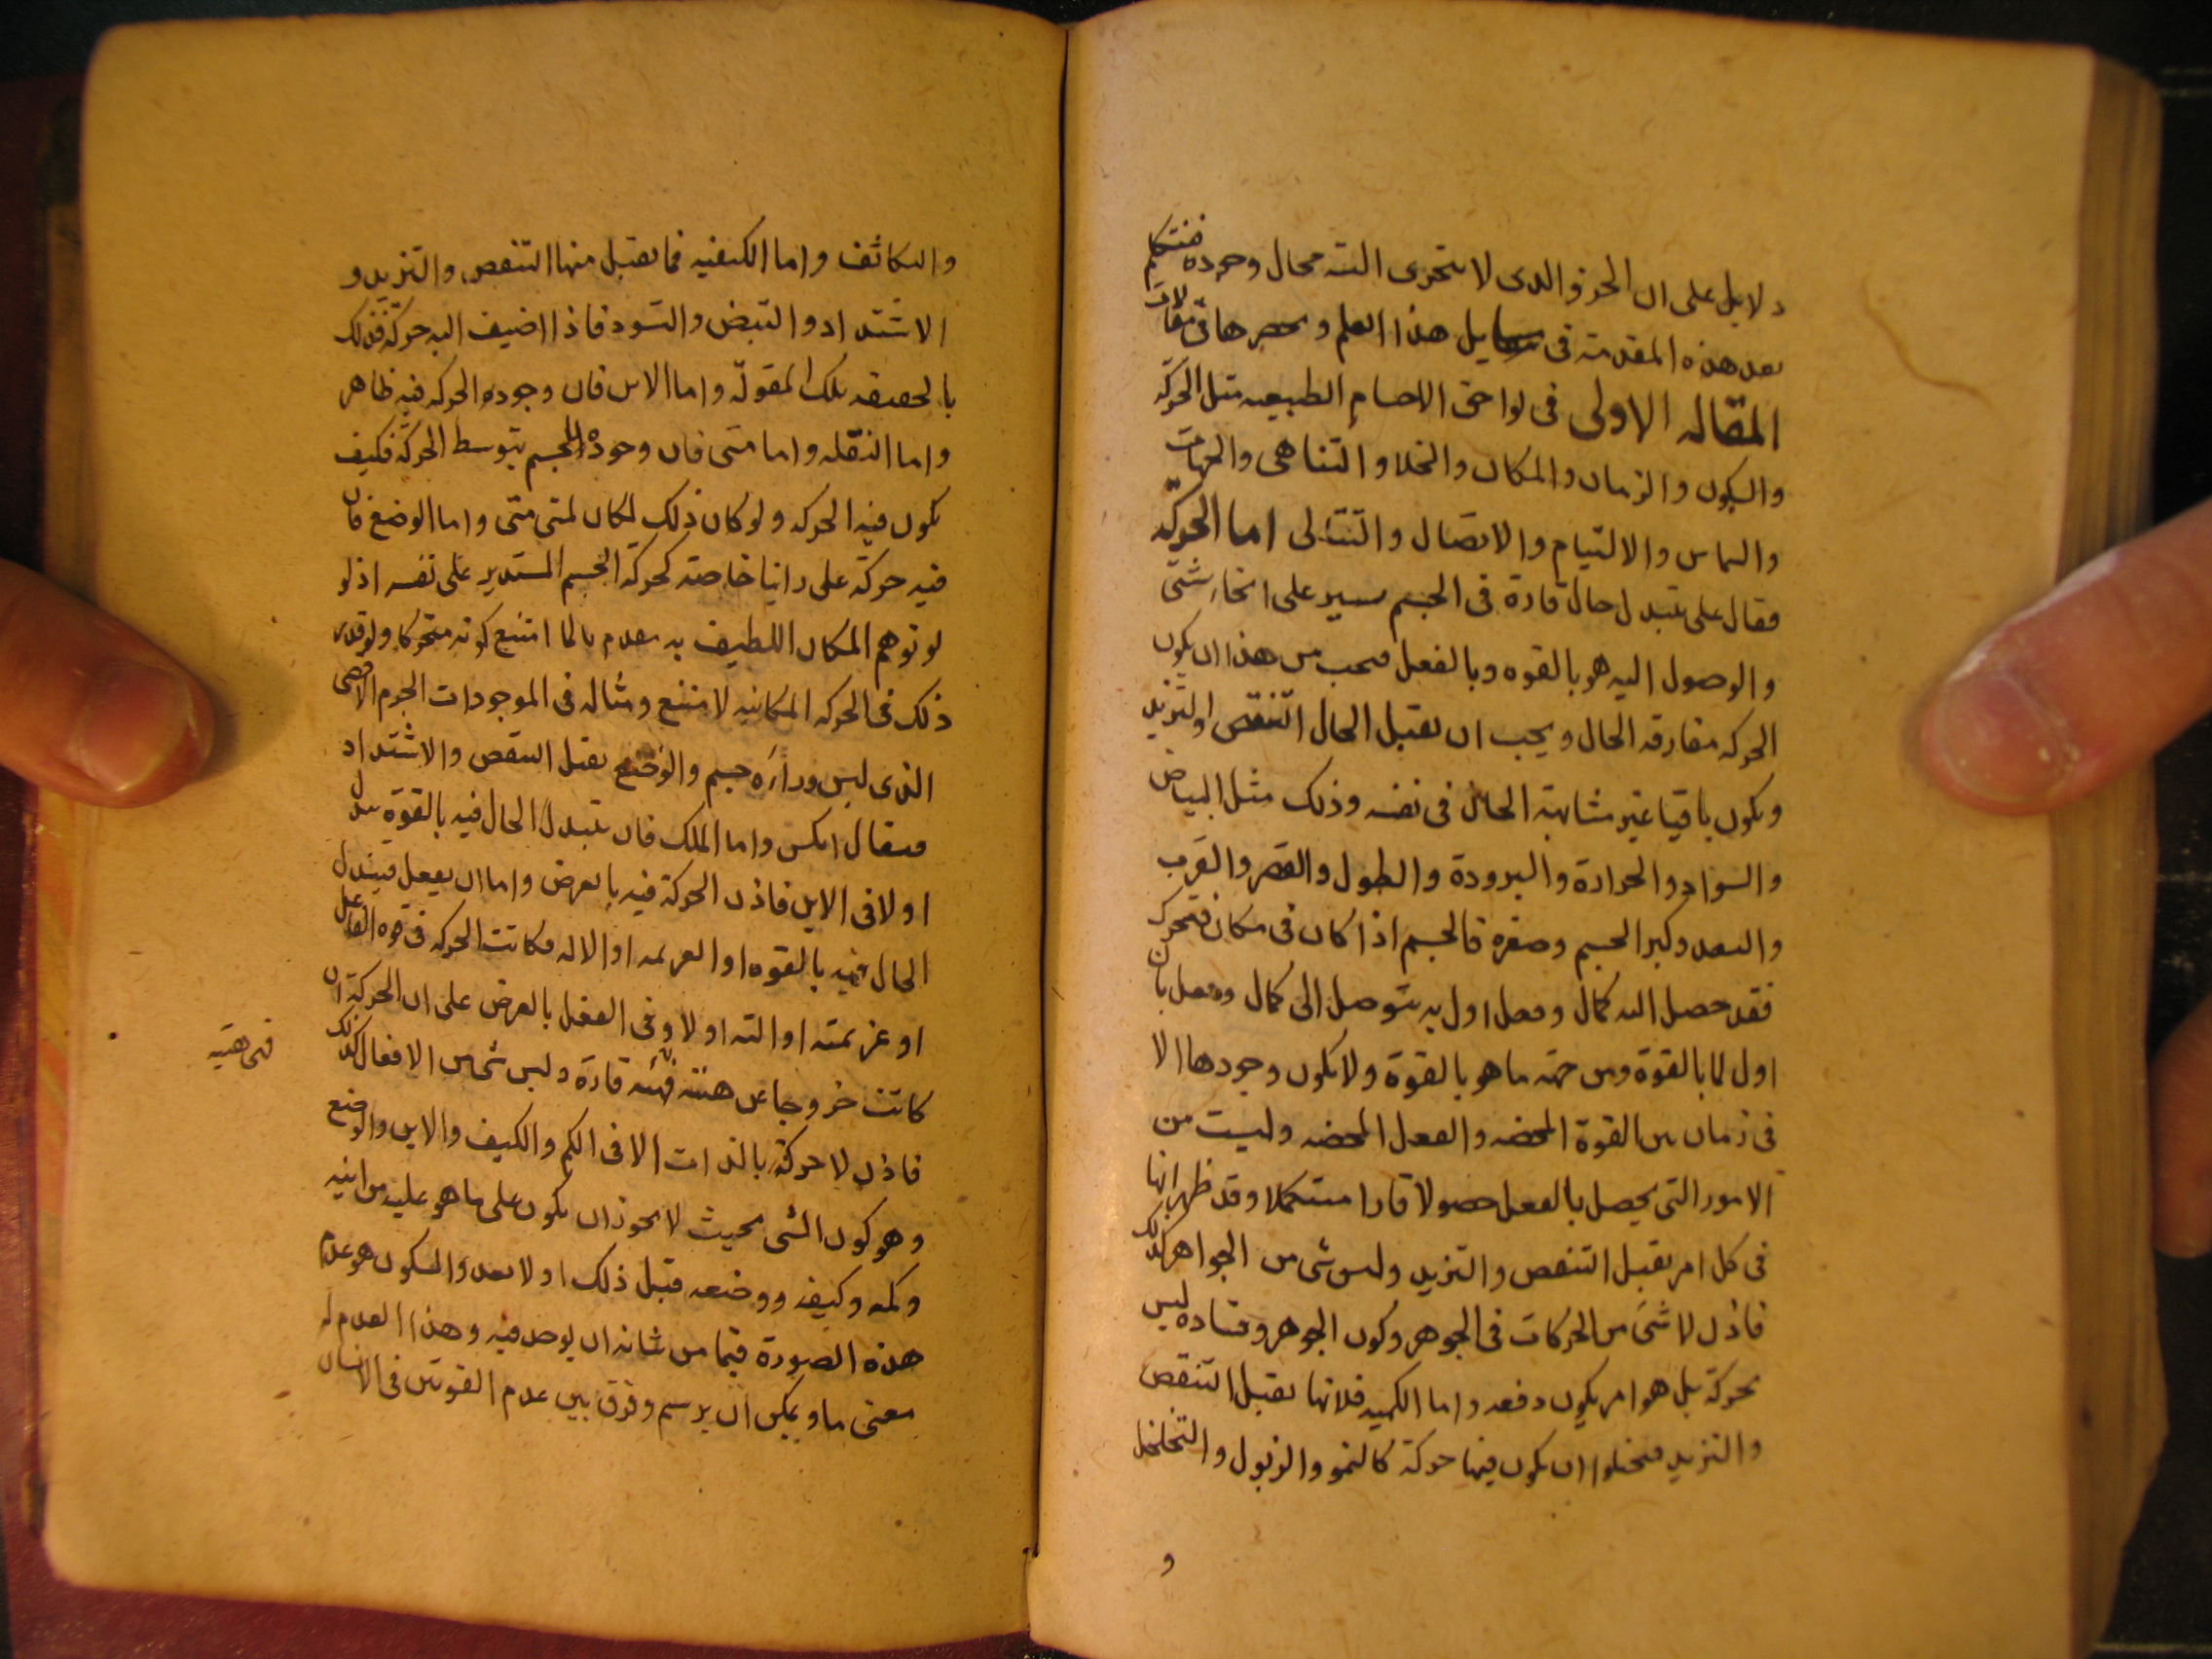 دلايل على ان الجزو الدى لا يتجزى البته محال وجوده فنتكلم
بعد هذه المقدمة فى مسايل هذا العلم ونحصرها فى مقالات
المقاله الاولى فى لواحق الاجسام الطبيعيه مثل الحركة
والسكون والزمان والمكان والخلا والتناهى والجهات
والتماس والالتيام والاتصال والتتالى اما الحركة
فقال على تبدل حال قارة فى الجسم يسير على اتجا شتى
والوصول اليه هو بالقوه وبالفعل فيجب من هذا ان يكون
الحركه مفارقه الحال ويجب ان يقبل الحال التنقص والتزيد
ويكون باقيا غير متشابهة الحال فى نفسه وذلك مثل البياض
والسواد والحرارة والبرودة والطول والقصر والقرب
والبعد وكبر الجسم وصغره فالجسم اذا كان فى مكان فتحرك
فقد حصل اليه كمال وفعل اول به يتوصل الى كمال وفعل ثان
اول لما بالقوة ومن جهة ما هو بالقوة ولا يكون وجودها الا
فى زمان بين القوة المحضه والفعل المحضه وليست من
الامور التى يحصل بالفعل حصولا قارا مستكملا وقد ظهر انها
فى كل امر يقبل التنقص والتزيد وليس شى من الجواهر كذلك
فاذن لا شى من الحركات فى الجوهر وكون الجوهر وفساده ليس
بحركة بل هو امر يكون دفعه واما الكميه فلانها يقبل التنقص
والتزيد فخليق ان يكون فيها حركة كالنمو والذبول والتخلخل
و
والتكاثف واما الكيفيه فما يقبل منها التنقص والتزيد و
الاشتداد والتبيض والتسود فاذا اضيف اليه حركة فذلك
بالحقيقه تلك المقولة واما الاين فان وجود الحركه فيه ظاهر
واما النقله واما متى فان وجوده للجسم بتوسط الحركة فكيف
يكون فيه الحركه ولو كان ذلك لكان لمتى متى واما الوضع فان
فيه حركة على راينا خاصته كحركة الجسم المستدير على نفسه اذ لو
لو توهم المكان اللطيف به معدم بالما امتنع كونه متحركا ولو قدر
ذلك فى الحركه المكانيه لامتنع ومثاله فى الموجودات الجرم الاقصى
الذى ليس وراءه جسم والوضع يقبل التنقص والاشتداد
فيقال انكس واما الملك فان تبدل الحال فيه بالقوة تبدل
اولا فى الاين فاذن الحركة فيه بالعرض واما ان يفعل فيتبدل
الحال فيه بالقوه او العزيمه او الاله فكانت الحركه فى قوه الفاعل
او عزيمته او الته اولا وفى الفعل بالعرض على ان الحركة ان
كانت خروجا عن هيئة فهيئه قارة وليس شى من الافعال كذلك
فهى هيئه
فاذن لا حركة بالذات الا فى الكم والكيف والاين والوضع
وهو كون الشى بحيث لا يجوز ان يكون على ما هو عليه من اينيه
وكمه وكيفه ووضعه قبل ذلك اولا بعد والسكون هو عدم
هذه الصورة فيما من شانه ان يوجد فيه وهذا العدم له
معنى ما ويمكن ان يرسم وفرق بين عدم القوتين فى الانسان